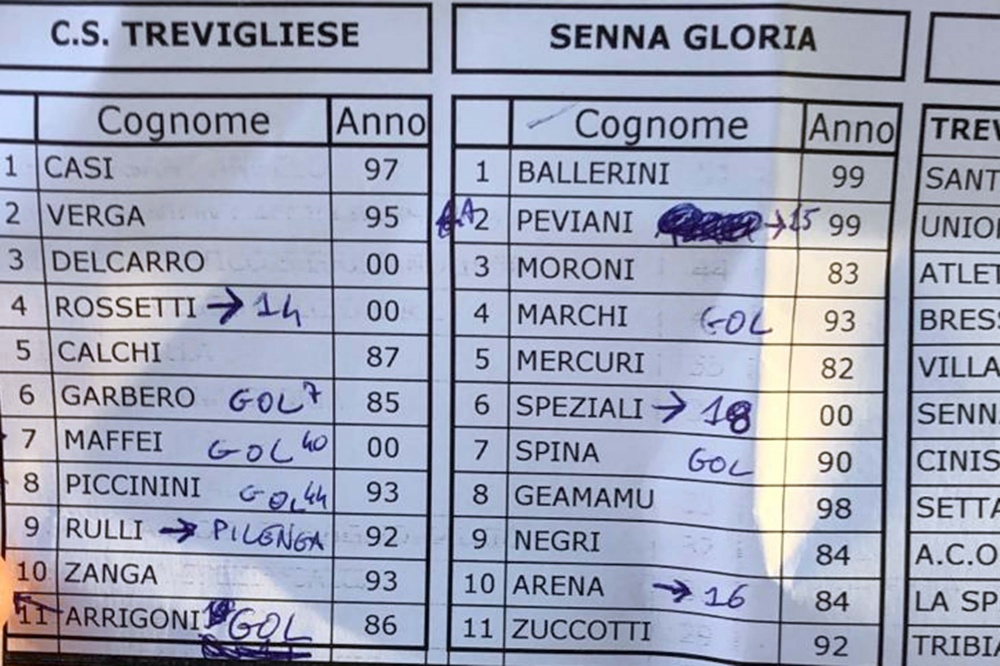 C.S. TREVIGLIESE
Cognome Anno
1 CASI 97
2 VERGA 95
3 DELCARRO 00
4 ROSSETTI → 14 00
5 CALCHI 87
6 GARBERO GOL 7 85
7 MAFFEI GOL 40 00
8 PICCININI GOL 44 93
9 RULLI → PILENGA 92
10 ZANGA 93
11 ARRIGONI GOL 86
SENNA GLORIA
Cognome Anno
1 BALLERINI 99
2 PEVIANI → 15 99
3 MORONI 83
4 MARCHI GOL 93
5 MERCURI 82
6 SPEZIALI → 18 00
7 SPINA GOL 90
8 GEAMAMU 98
9 NEGRI 84
10 ARENA → 16 84
11 ZUCCOTTI 92
TREV
SANT
UNIO
ATLET
BRESS
VILLA
SENN
CINIS
SETTA
A.C.O
LA SP
TRIBIA